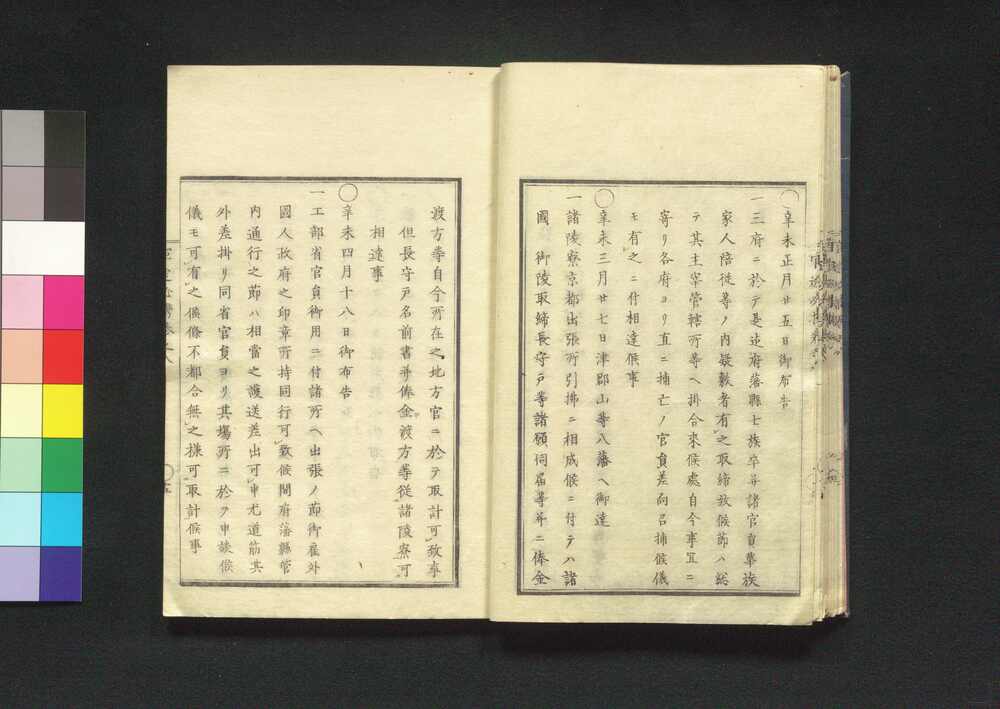 ○辛未正月廿五日御布告
一三府ニ於テ是迄府藩縣士族卒并諸官員華族
家人陪従等ノ内疑敷者有之取締致候節ハ総
テ其主宰管轄所等ヘ掛合來候處自今事宜ニ
寄リ各府ヨリ直ニ捕亡ノ官員差向召捕候儀
モ有之ニ付相達候事
○辛未三月廿七日津郡山等八藩ヘ御達
一諸陵寮京都出張所引拂ニ相成候ニ付テハ諸
國 御陵取締長守戸等諸願伺届等并ニ俸金
渡方等自今所在之地方官ニ於テ取計可致事
但長守戸名前書并俸金渡方等従諸陵寮可
相達事
○辛未四月十八日御布告
一工部省官員御用ニ付諸所ヘ出張ノ節御雇外
國人政府之印章所持同行可致候間府藩縣管
内通行之節ハ相當之護送差出可申尤道筋其
外差掛リ同省官員ヨリ其場所ニ於テ申談候
儀モ可有之候條不都合無之様可取計候事